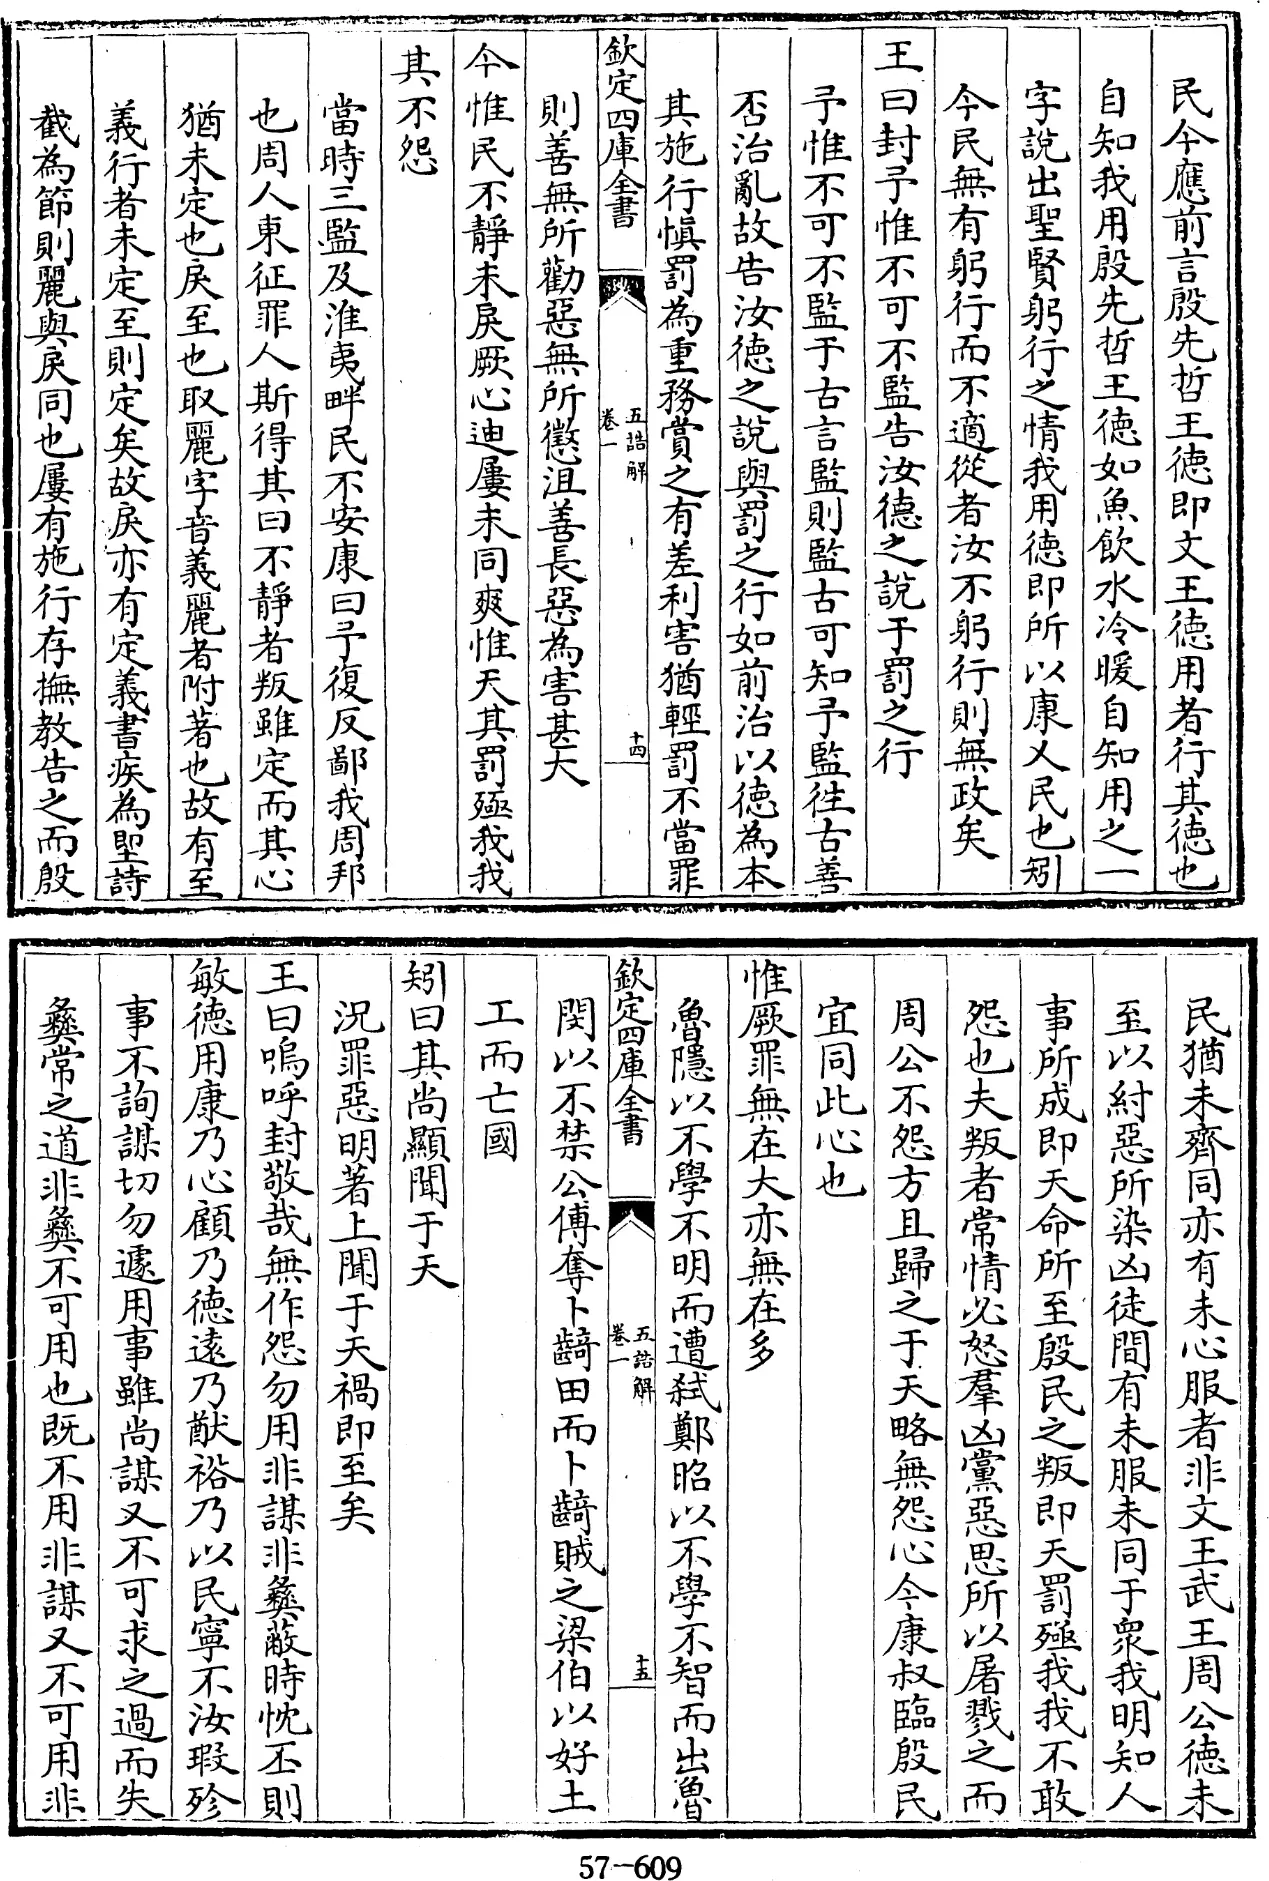 民今應前言殷先哲王德即文王德用者行其德也
自知我用殷先哲王德如魚飲水冷暖自知用之一
字說出聖賢躬行之情我用德即所以康乂民也矧
今民無有躬行而不適從者汝不躬行則無政矣
王曰封予惟不可不監告汝德之說于罰之行
予惟不可不監于古言監則監古可知予監徃古善
否治亂故告汝德之說與罰之行如前治以德為本
其施行慎罰為重務賞之有差利害猶輕罰不當罪
欽定四庫全書
五誥解
卷一
十四
則善無所勸惡無所懲沮善長惡為害甚大
今惟民不靜未戾厥心迪屢未同爽惟天其罰殛我我
其不怨
當時三監及淮夷畔民不安康曰予復反鄙我周邦
也周人東征罪人斯得其曰不靜者叛雖定而其心
猶未定也戾至也取麗字音義麗者附著也故有至
義行者未定至則定矣故戾亦有定義書疾為堲詩
巀為節則麗與戾同也屢有施行存撫教告之而殷
民猶未齊同亦有未心服者非文王武王周公德未
至以紂惡所染凶徒間有未服未同于衆我明知人
事所成即天命所至殷民之叛即天罰殛我我不敢
怨也夫叛者常情必怒羣凶黨惡思所以屠戮之而
周公不怨方且歸之于天略無怨心今康叔臨殷民
宜同此心也
惟厥罪無在大亦無在多
魯隱以不學不明而遭弒鄭昭以不學不智而出魯
欽定四庫全書
五誥解
卷一
十五
閔以不禁公傅奪卜齮田而卜齮賊之梁伯以好土
工而亡國
矧曰其尚顯聞于天
況罪惡明著上聞于天禍即至矣
王曰嗚呼封敬哉無作怨勿用非謀非彝蔽時忱丕則
敏德用康乃心顧乃德遠乃猷裕乃以民寧不汝瑕殄
事不詢謀切勿遽用事雖尚謀又不可求之過而失
彝常之道非彝不可用也既不用非謀又不可用非
57-609